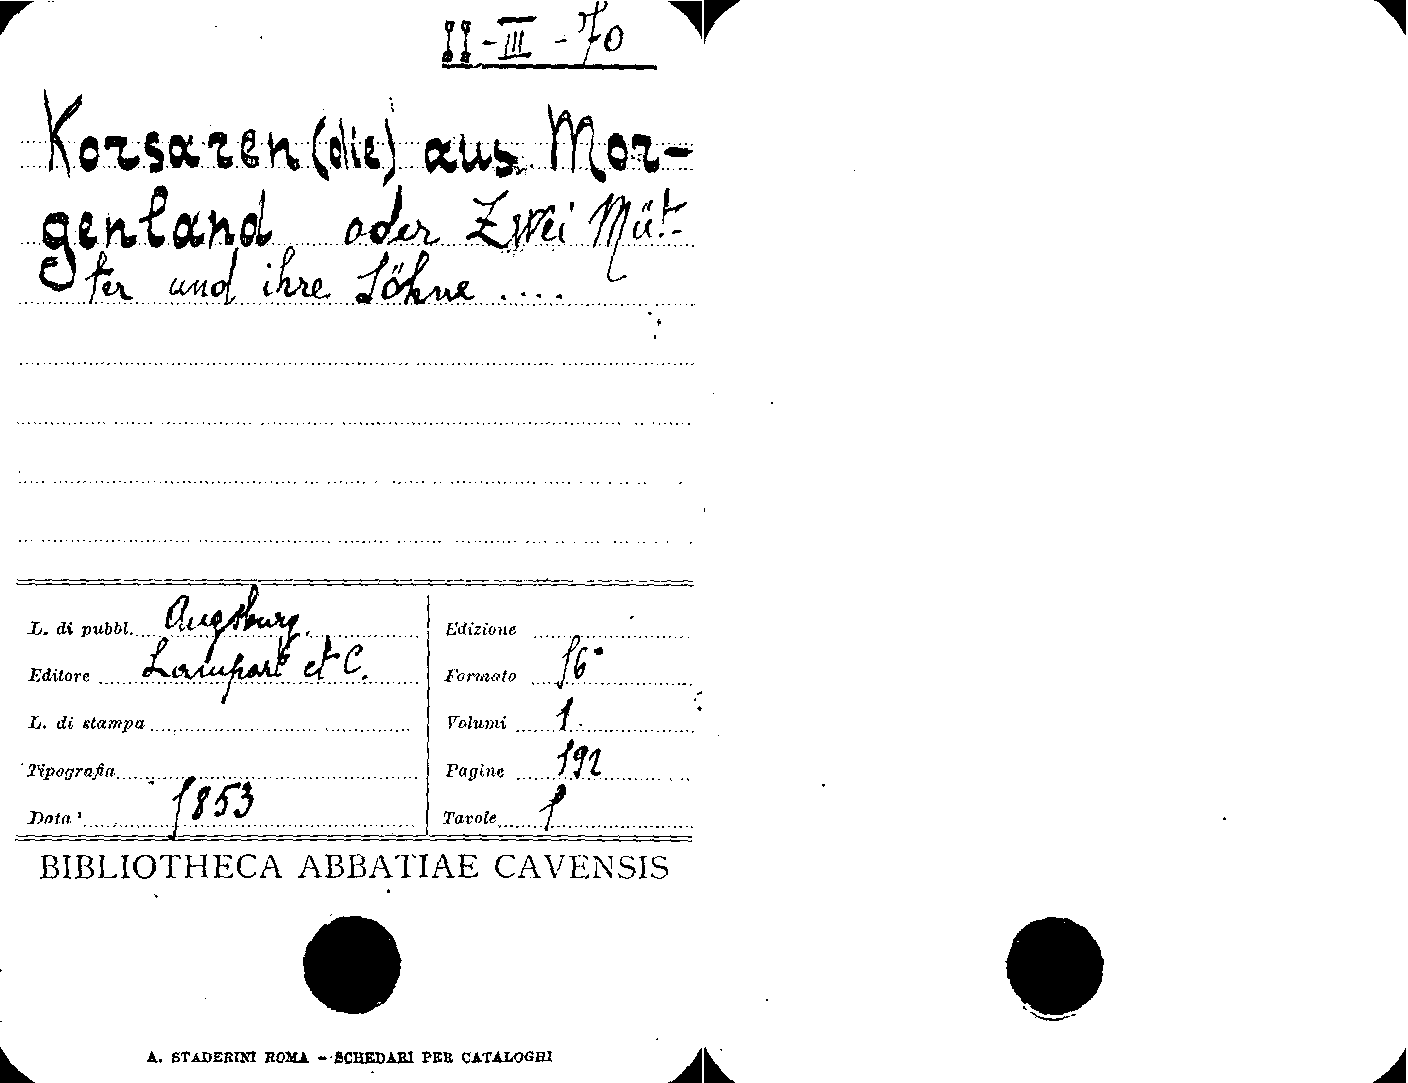 II-III-70
Korsaren (die) aus Mor-
genland oder Zwei Müt-
ter und ihre Söhne ....
L. di pubbl. Augsburg.
Editore Lampart et C.
L. di stampa
Tipografia
Data 1853
Edizione
Formato 16°
Volumi 1.
Pagine 192
Tavole 1
BIBLIOTHECA ABBATIAE CAVENSIS
A. STADERINI ROMA - SCHEDARI PER CATALOGHI